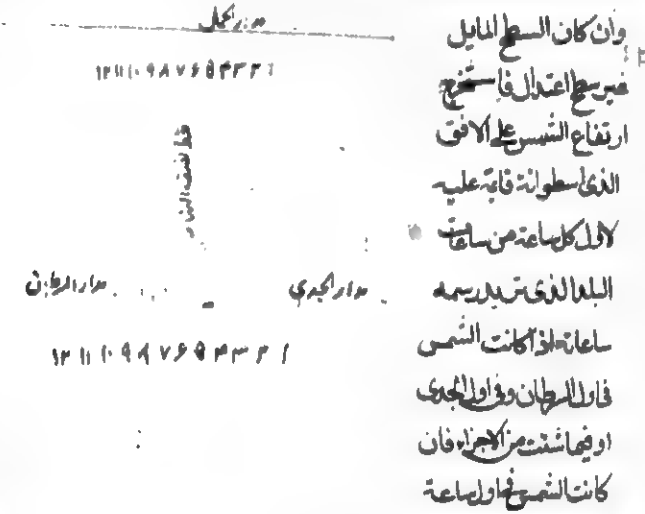 وان كان السطح المايل
غير سطح اعتدال فاستخرج
ارتفاع الشمس على الافق
الذى اسطوانة قائمة عليه
لاول كل ساعة من ساعات
البلد الذى تريد رسمه
ساعاته اذا كانت الشمس
فى اول السرطان وفى اول الجدى
او فيما شئت من الاجزاء فان
كانت الشمس فى اول ساعة
مدار الحمل
١ ٢ ٣ ٤ ٥ ٦ ٧ ٨ ٩ ١٠ ١١ ١٢
خط نصف النهار
مدار الجدي
مدار السرطان
١ ٢ ٣ ٤ ٥ ٦ ٧ ٨ ٩ ١٠ ١١ ١٢